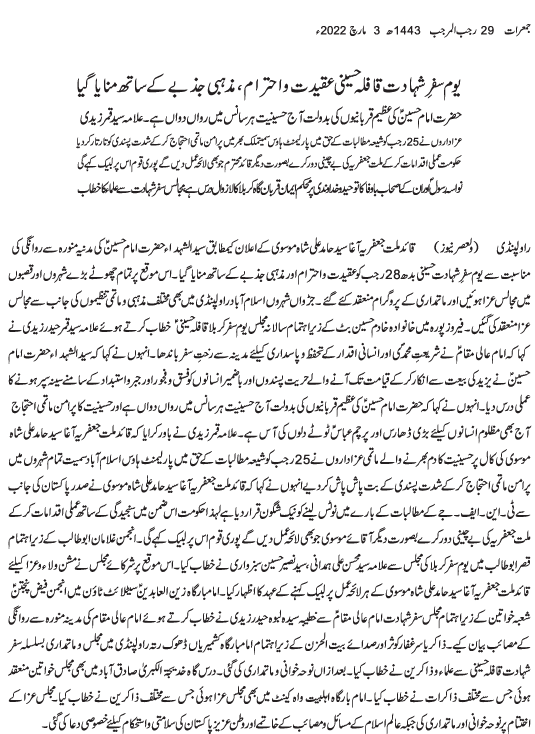 جمعرات 29 رجب المرجب 1443ھ 3 مارچ 2022ء
یوم سفر شہادت قافلہ حسینی عقیدت و احترام، مذہبی جذبے کے ساتھ منایا گیا
حضرت امام حسینؑ کی عظیم قربانیوں کی بدولت آج حسینیت ہر سانس میں رواں دواں ہے۔ علامہ سید قمر زیدی
عزاداروں نے 25 رجب کو شیعہ مطالبات کے حق میں پارلیمنٹ ہاؤس سمیت ملک بھر میں پرامن ماتمی احتجاج کر کے شدت پسندی کو تار تار کر دیا
حکومت عملی اقدامات کر کے ملت جعفریہ کی بے چینی دور کرے بصورت دیگر قائد محترم جو بھی لائحہ عمل دیں گے پوری قوم اس پر لبیک کہے گی
نواسہ رسولؐ اور ان کے اصحاب باوفا کا توحید خداوندی پر محکم ایمان قربان گاہ کربلا کا لازوال درس ہے، مجالس سفر شہادت سے علماء کا خطاب
راولپنڈی (ولعصر نیوز) قائد ملت جعفریہ آغا سید حامد علی شاہ موسوی کے اعلان کیمطابق سید الشہداء حضرت امام حسینؑ کی مدینہ منورہ سے روانگی کی
مناسبت سے یوم سفر شہادت حسینی بدھ 28 رجب کو عقیدت و احترام اور مذہبی جذبے کے ساتھ منایا گیا۔ اس موقع پر تمام چھوٹے بڑے شہروں اور قصبوں
میں مجالس عزا ہوئیں اور ماتمداری کے پروگرام منعقد کئے گئے۔ جڑواں شہروں اسلام آباد راولپنڈی میں بھی مختلف مذہبی و ماتمی تنظیموں کی جانب سے مجالس
عزا منعقد کی گئیں۔ فیروز پورہ میں خانوادہ خادم حسین بٹ کے زیر اہتمام سالانہ مجلس یوم سفر کربلا قافلہ حسینیؑ خطاب کرتے ہوئے علامہ سید قمر حیدر زیدی نے
کہا کہ امام عالی مقامؑ نے شریعت محمدیؐ اور انسانی اقدار کے تحفظ و پاسداری کیلئے مدینہ سے رخت سفر باندھا۔ انہوں نے کہا کہ سید الشہداء حضرت امام
حسینؑ نے یزید کی بیعت سے انکار کر کے قیامت تک آنے والے حریت پسندوں اور باضمیر انسانوں کو فسق و فجور اور جبر و استبداد کے سامنے سینہ سپر ہونے کا
عملی درس دیا۔ انہوں نے کہا کہ حضرت امام حسینؑ کی عظیم قربانیوں کی بدولت آج حسینیت ہر سانس میں رواں دواں ہے اور حسینیت کا پرامن ماتمی احتجاج
آج بھی مظلوم انسانوں کیلئے بڑی ڈھارس اور پرچم عباسؑ ٹوٹے دلوں کی آس ہے۔ علامہ قمر زیدی نے باور کرایا کہ قائد ملت جعفریہ آغا سید حامد علی شاہ
موسوی کی کال پر حسینیت کا دم بھرنے والے ماتمی عزاداروں نے 25 رجب کو شیعہ مطالبات کے حق میں پارلیمنٹ ہاؤس اسلام آباد سمیت تمام شہروں میں
پرامن ماتمی احتجاج کر کے شدت پسندی کے بت پاش پاش کر دیے انہوں نے کہا کہ قائد ملت جعفریہ آغا سید حامد علی شاہ موسوی نے صدر پاکستان کی جانب
سے ٹی۔این۔ایف۔جے کے مطالبات کے بارے میں نوٹس لینے کو نیک شگون قرار دیا ہے لہذا حکومت اس ضمن میں سنجیدگی کے ساتھ عملی اقدامات کر کے
ملت جعفریہ کی بے چینی دور کرے بصورت دیگر آقائے موسوی جو بھی لائحہ عمل دیں گے پوری قوم اس پر لبیک کہے گی۔ انجمن غلامان ابوطالب کے زیر اہتمام
قصر ابوطالب میں یوم سفر کربلا کی مجلس سے علامہ سید محسن علی ہمدانی، سید نصیر حسین سبزواری نے خطاب کیا۔ اس موقع پر شرکائے مجلس نے مشن ولاء و عزا کیلئے
قائد ملت جعفریہ آغا سید حامد علی شاہ موسوی کے ہر لائحہ عمل پر لبیک کہنے کے عہد کا اظہار کیا۔ امام بارگاہ زین العابدین سیٹلائٹ ٹاؤن میں انجمن فیض پنجتنؑ
شعبہ خواتین کے زیر اہتمام مجلس سفر شہادت امام عالی مقامؑ سے خطیبہ سیدہ لبوہ حیدر زیدی نے خطاب کرتے ہوئے امام عالی مقام کی مدینہ منورہ سے روانگی
کے مصائب بیان کیے۔ ذاکرہ یا سر غفار کوثر اور صدائے بیت الحزن کے زیر اہتمام امام بارگاہ کشمیریاں ڈھوک رتہ راولپنڈی میں مجلس و ماتمداری بسلسلہ سفر
شہادت قافلہ حسینی سے علماء و ذاکرین نے خطاب کیا۔ بعد ازاں نوحہ خوانی و ماتمداری کی گئی۔ درس گاہ خدیجۃ الکبریٰ صادق آباد میں بھی مجلس خواتین منعقد
ہوئی جس سے مختلف ذاکرات نے خطاب کیا۔ امام بارگاہ اہلبیت واہ کینٹ میں بھی مجلس عزا ہوئی جس سے مختلف ذاکرین نے خطاب کیا۔ مجلس عزا کے
اختتام پر نوحہ خوانی اور ماتمداری کی جبکہ عالم اسلام کے مسائل و مصائب کے خاتمے اور وطن عزیز پاکستان کی سلامتی و استحکام کیلئے خصوصی دعا کی گئی۔